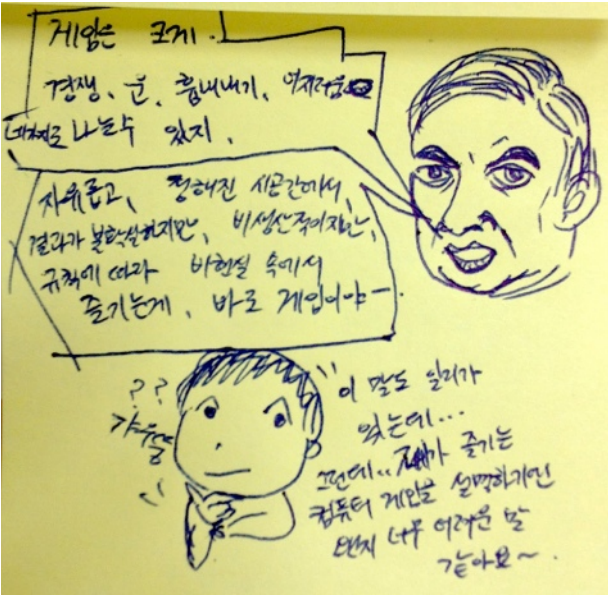 게임은 크게.
경쟁、운、흉내내기、어지러움
네가지로 나눌수 있지.
자유롭고, 정해진 시공간에서,
결과가 불확실하지만, 비생산적이지만,
규칙에 따라 비현실 속에서
즐기는게, 바로 게임이야-
??
갸우뚱
이 말도 일리가
있는데...
그런데.. 제가 즐기는
컴퓨터 게임을 설명하기엔
왠지 너무 어려운 말
같아요~.